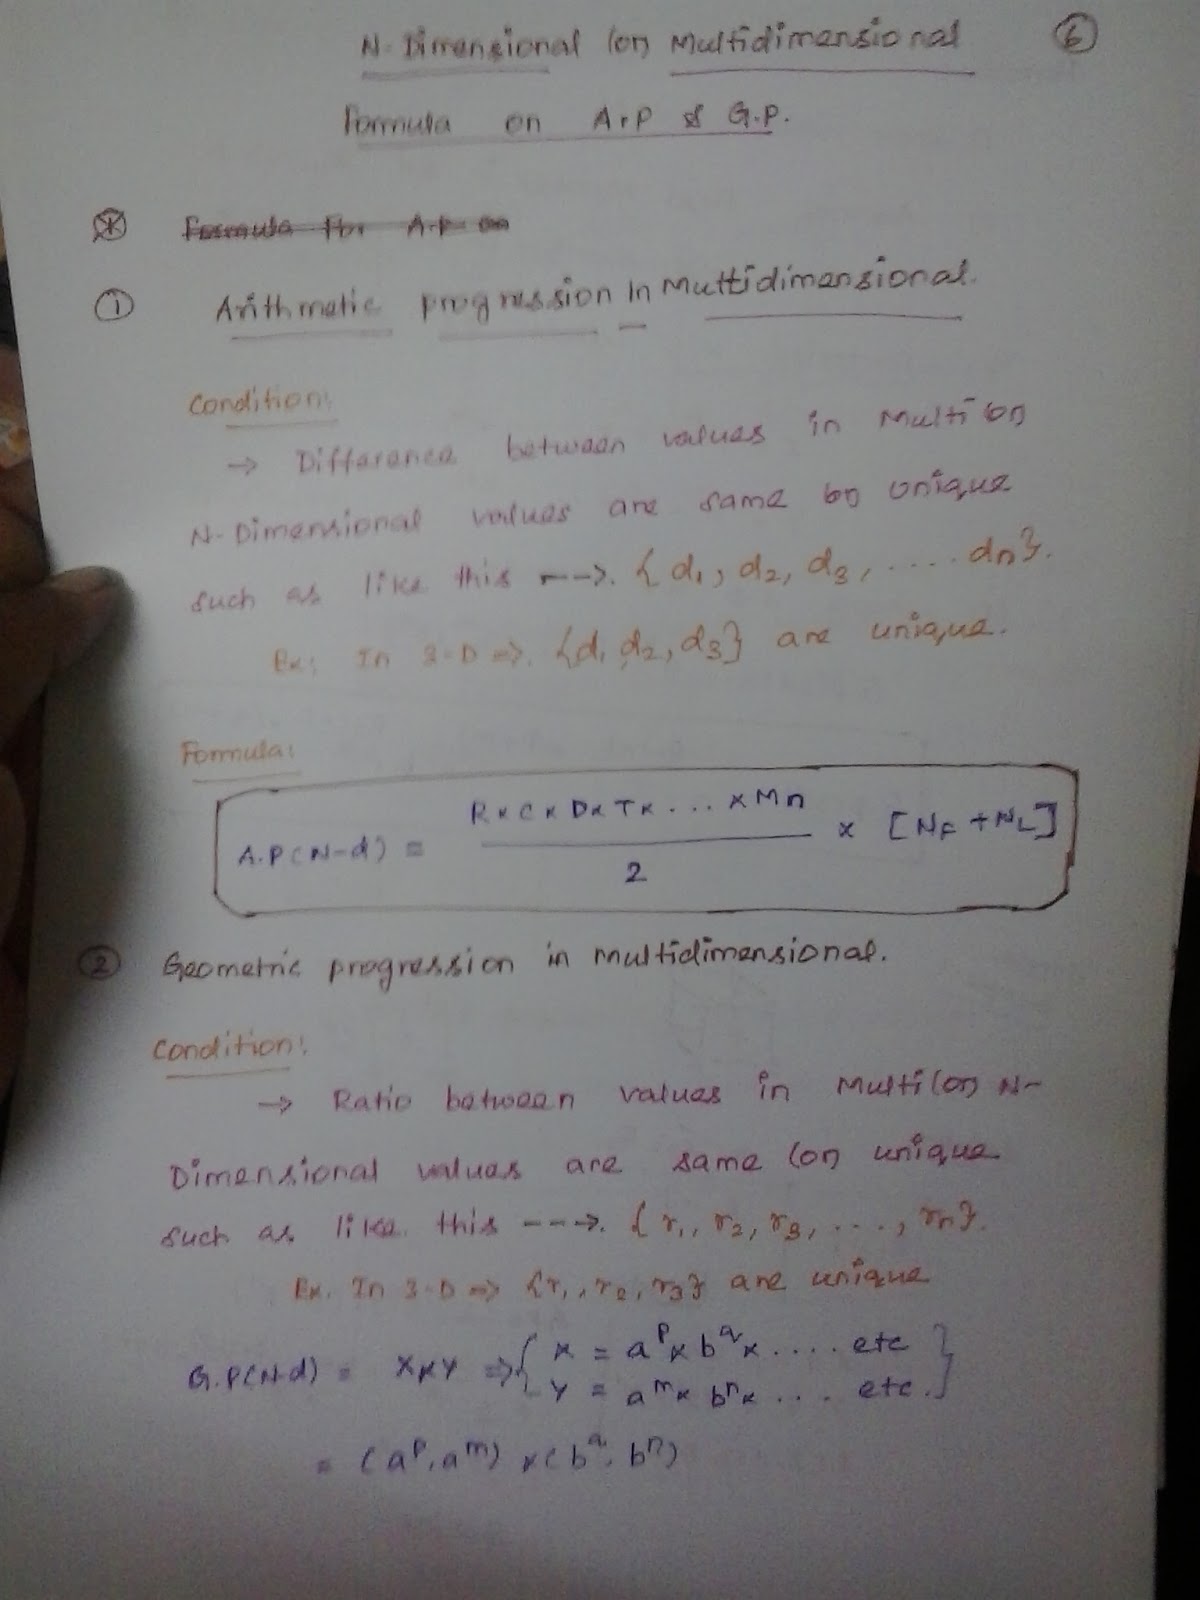 N-Dimensional (or) Multidimensional ⑥
Formula on A.P & G.P.
Formula For A.P on
① Arithmatic progression In Multidimensional.
Condition:
→ Difference between values in Multi (or)
N-Dimensional values are same (or) unique
such as like this ---> {d1, d2, d3, .... dn}.
Ex: In 3-D => {d1 d2, d3} are unique.
Formula:
A.P(N-d) = R x C x D x T x ... x Mn / 2 x [NF + NL]
② Geometric progression in multidimensional.
Condition:
→ Ratio between values in Multi (or) N-
Dimensional values are same (or) unique
such as like this ---> {r1, r2, r3, ...., rn}.
Ex. In 3-D => {r1, r2, r3} are unique
G.P(N-d) = X x Y => { X = a^p x b^q x .... etc
Y = a^m x b^n x .... etc. }
= (a^p . a^m) x (b^q . b^n)